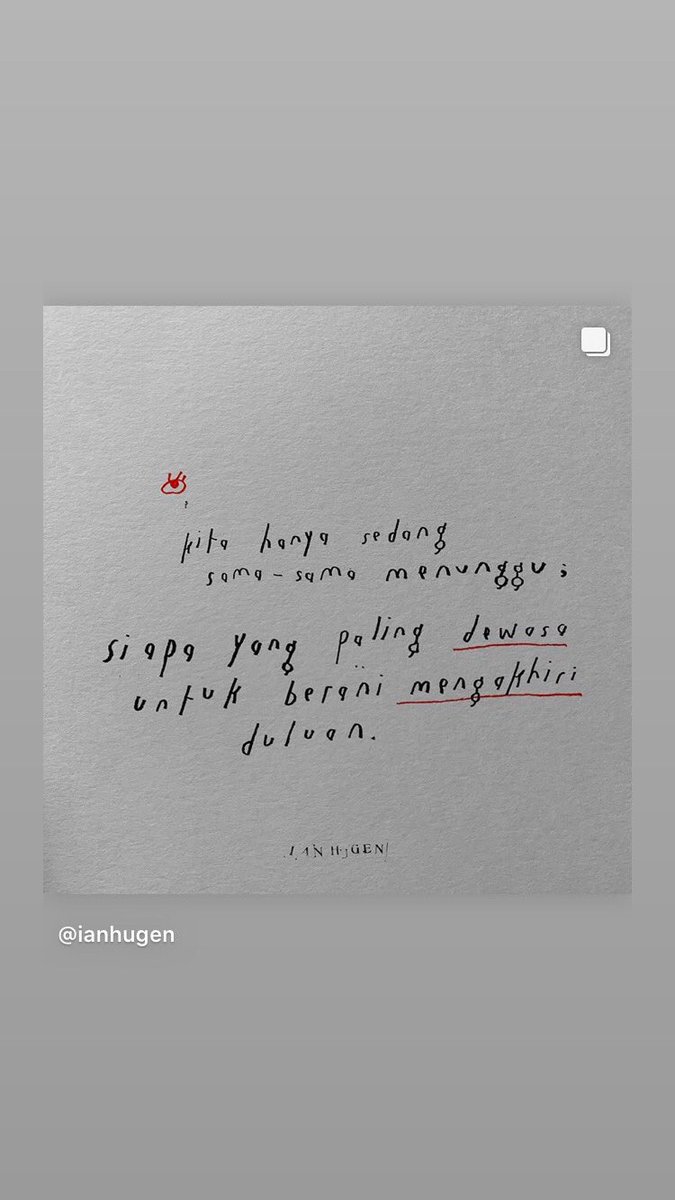 kita hanya sedang
sama-sama menunggu;
siapa yang paling dewasa
untuk berani mengakhiri
duluan.
IAN HUGEN
@ianhugen